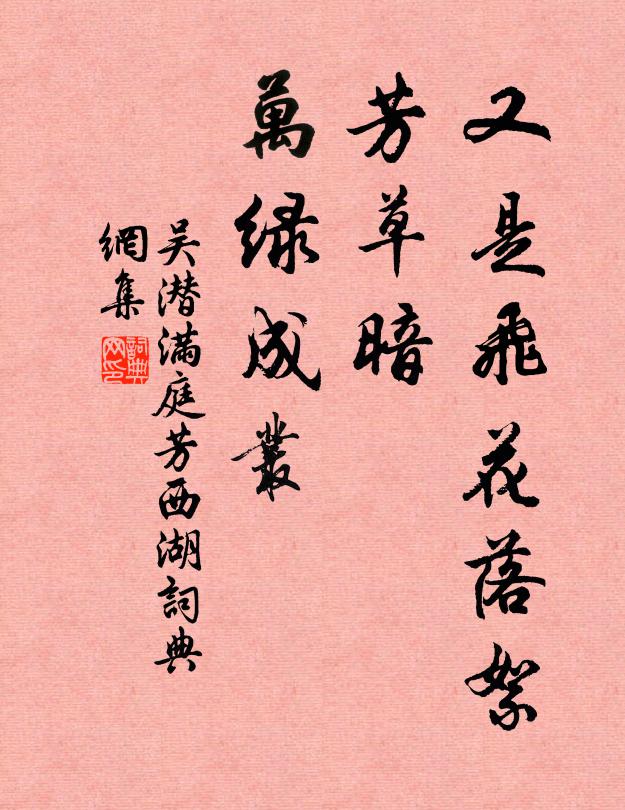 又是飛花落絮
芳草暗
萬緑成叢
吴潜滿庭芳西湖詞典
網集
詞典網印